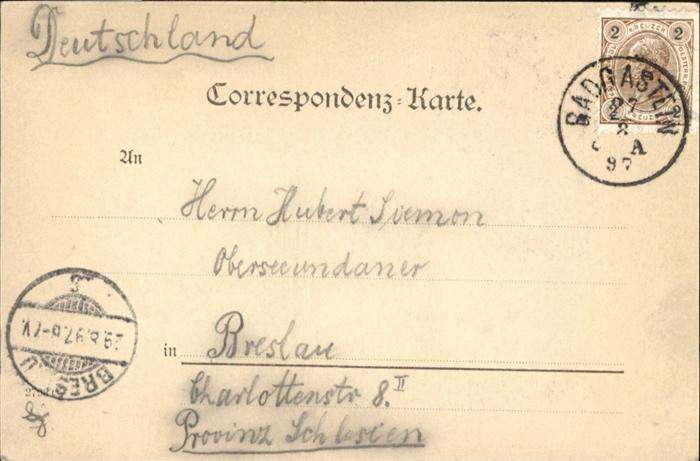 Deutschland
2 KREUZER 2
Correspondenz-Karte.
BADGASTEIN
27
8
A
97
An
Herrn Hubert Siemon
Obersecundaner
29.8.97.6-7.V.
BRESLAU
in Breslau
Charlottenstr 8. II
Provinz Schlesien